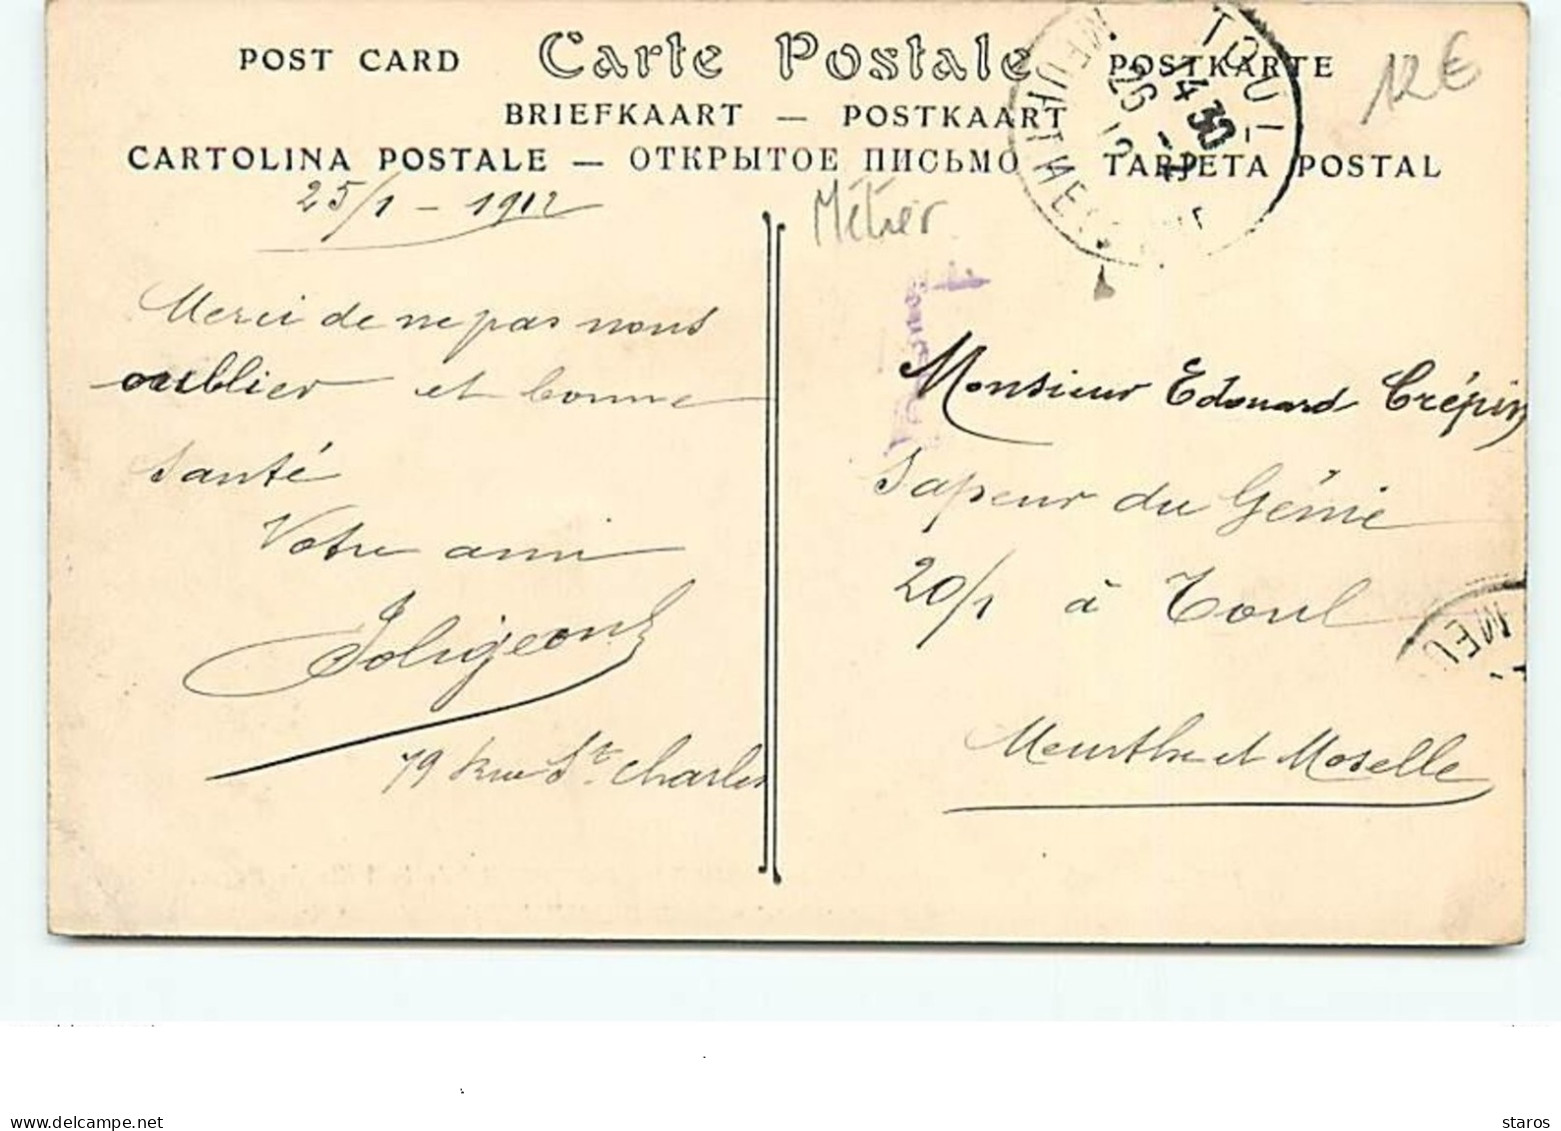 POST CARD Carte Postale POSTKARTE
12€
BRIEFKAART — POSTKAART
CARTOLINA POSTALE — ОТКРЫТОЕ ПИСЬМО TARJETA POSTAL
TOUL
14 30
26 - 1
12
MEURTHE-ET-M
25/1 - 1912
Métier
Merci de ne pas nous
oublier et bonne
Santé
Votre ami
79 Rue St. Charles
Monsieur Edouard Crépin
Sapeur du Génie
20/1 à Toul
Meurthe et Moselle
MEU
www.delcampe.net
staros